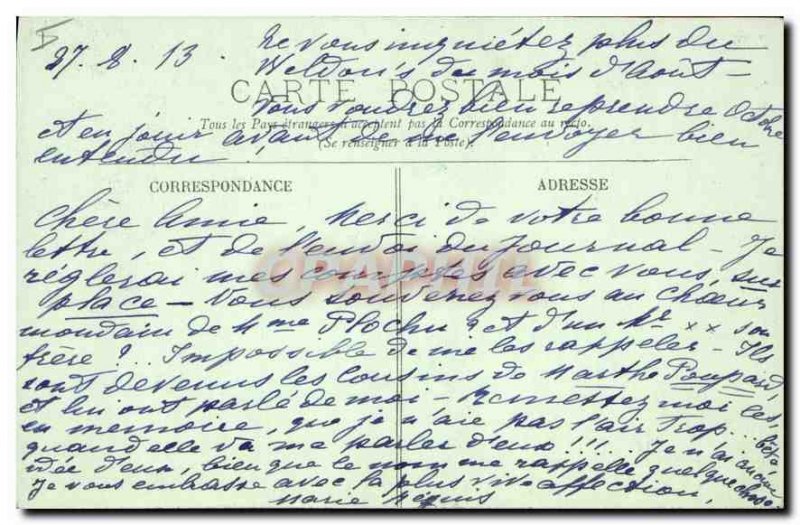 27.8.13. Ne vous inquiétez plus du
Weldon's du mois d'Août -
CARTE POSTALE
Vous voudrez bien reprendre Octobre
Tous les Pays étrangers n'acceptent pas la Correspondance au recto.
et en jouir avant de me l'envoyer bien
(Se renseigner à la Poste).
entendu.
CORRESPONDANCE
ADRESSE
Chère Amie, Merci de votre bonne
lettre, et de l'envoi du journal - Je
réglerai mes comptes avec vous, sur
place - Vous souvenez vous au chœur
mondain de Mme Plochu ? et d'un Mr xx son
frère ? .. Impossible de me les rappeler - Ils
sont devenus les cousins de Marthe Poupard,
et lui ont parlé de moi - Remettez moi les
en mémoire, que je n'aie pas l'air trop .. bêta
quand elle va me parler d'eux !!!. Je n'ai aucune
idée d'eux, bien que le nom me rappelle quelque chose
Je vous embrasse avec la plus vive affection,
Marie
OPAPHIL